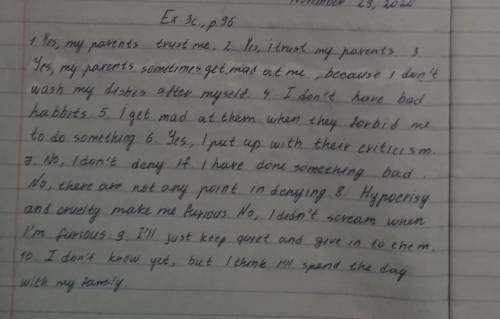 November 29, 2020
Ex 3c, p 96
1. Yes, my parents trust me. 2. Yes, i trust my parents 3
Yes, my parents sometimes get mad at me, because i don't
wash my dishes after myself. 4. I don't have bad
habbits. 5. I get mad at them when they forbid me
to do something 6. Yes, I put up with their criticism.
7. No, I don't deny if I have done something bad.
No, there are not any point in denying. 8. Hypocrisy
and cruelty make me furious No, I didn't scream when
I'm furious. 9. I'll just keep quiet and give in to them.
10. I don't know yet, but I think I'll spend the day
with my family.